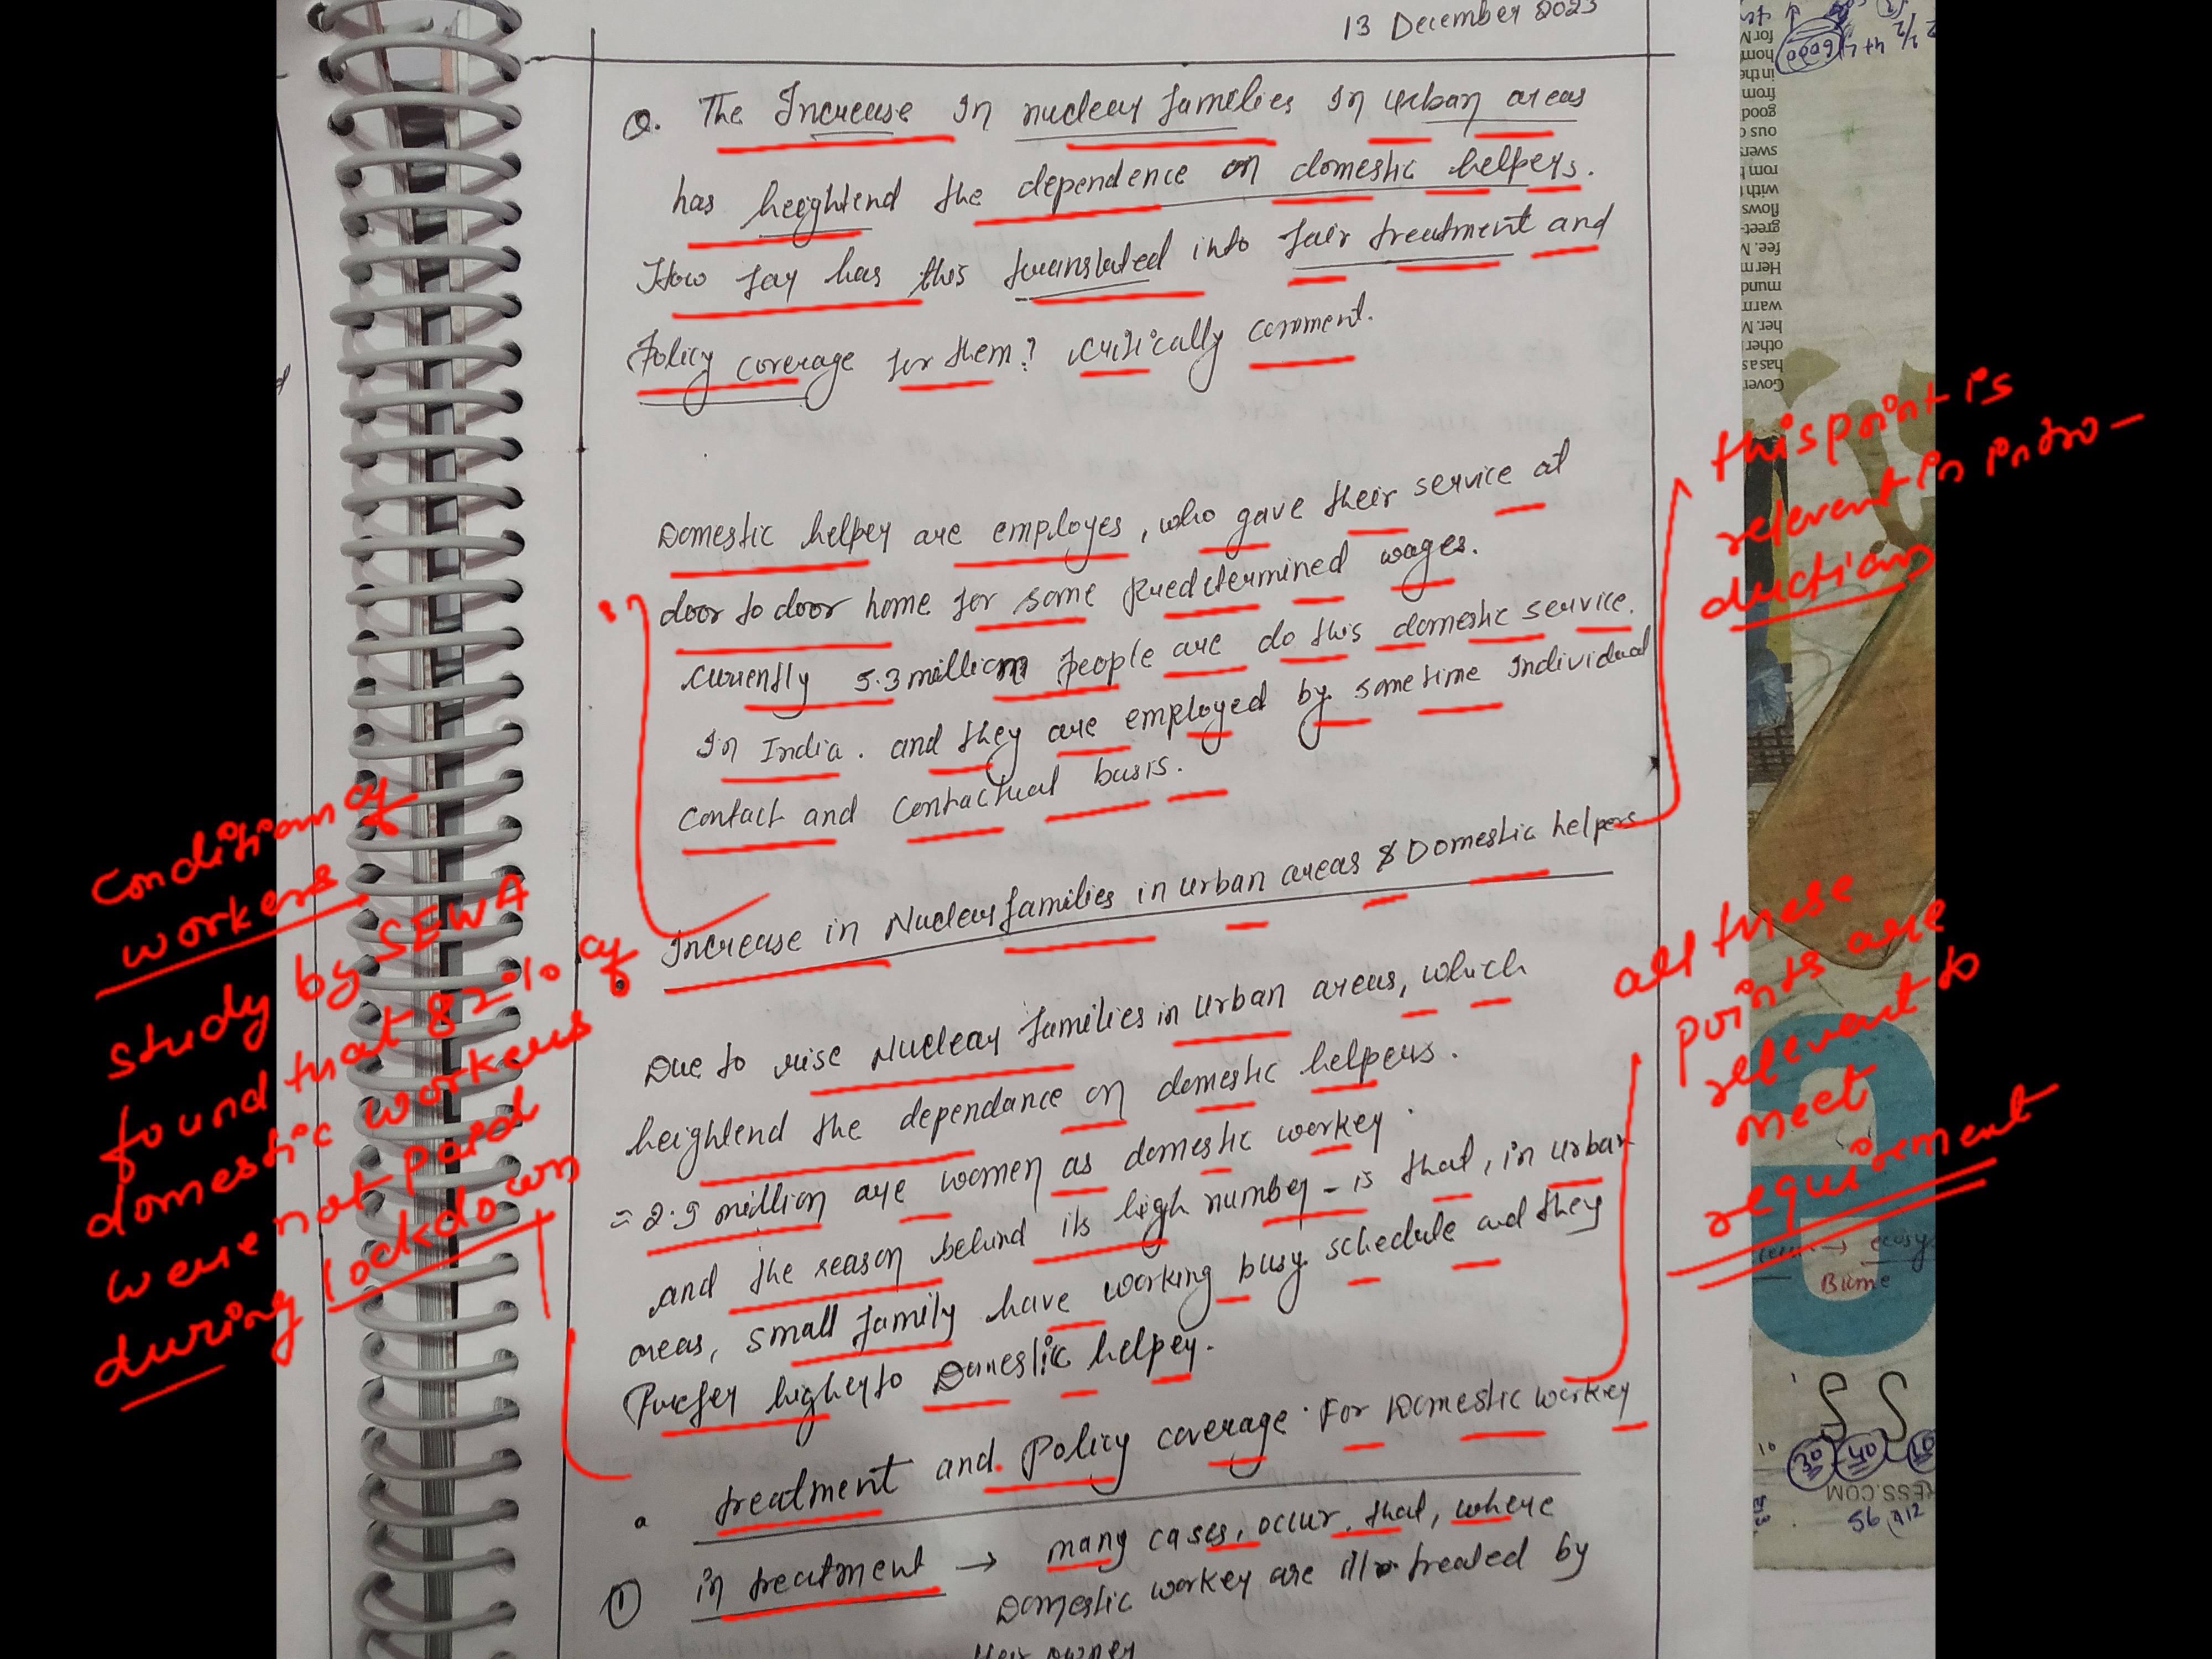 13 December 2023
Q. The Increase In nuclear families In urban areas
has heightend the dependence on domestic helpers.
How far has this translated into fair treatment and
Policy coverage for them? critically comment.
Domestic helper are employes, who gave their service at
door to door home for some Predetermined wages.
Currently 5.3 million people are do this domestic service.
In India. and they are employed by sometime Individual
contact and contactual basis.
Increase in Nuclear families in urban areas & Domestic helpers
Due to rise Nuclear families in urban areas, which
heightend the dependance on domestic helpers.
= 2.9 million are women as domestic worker.
and the reason behind its high number - is that, in urban
areas, small family have working busy schedule and they
Prefer higher to Domestic helper.
treatment and Policy coverage For Domestic worker
① in treatment → many cases, occur, that, where
Domestic worker are ill treated by
their owner
this point is
relevant in intro-
duction
all these
points are
relevant to
meet
requirement
condition of
workers
study by SEWA
found that 82% of
domestic workers
were not paid
during lockdown
ecosy
Bume
30 40 10
RESS.COM
56
6000
Gover
has a s
other
her. M
warm
mund
Her m
fee. M
greet-
flows
with t
rom t
swers
ous c
good
from
in the
hom
for M